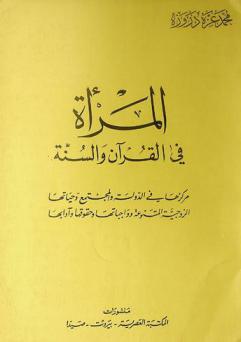 محمد عزة دروزة
المرأة
في القرآن والسنة
مركزها في الدولة والمجتمع وحياتها
الزوجية المتنوعة وواجباتها وحقوقها وآدابها
منشورات
المكتبة العصرية - بيروت - صيدا